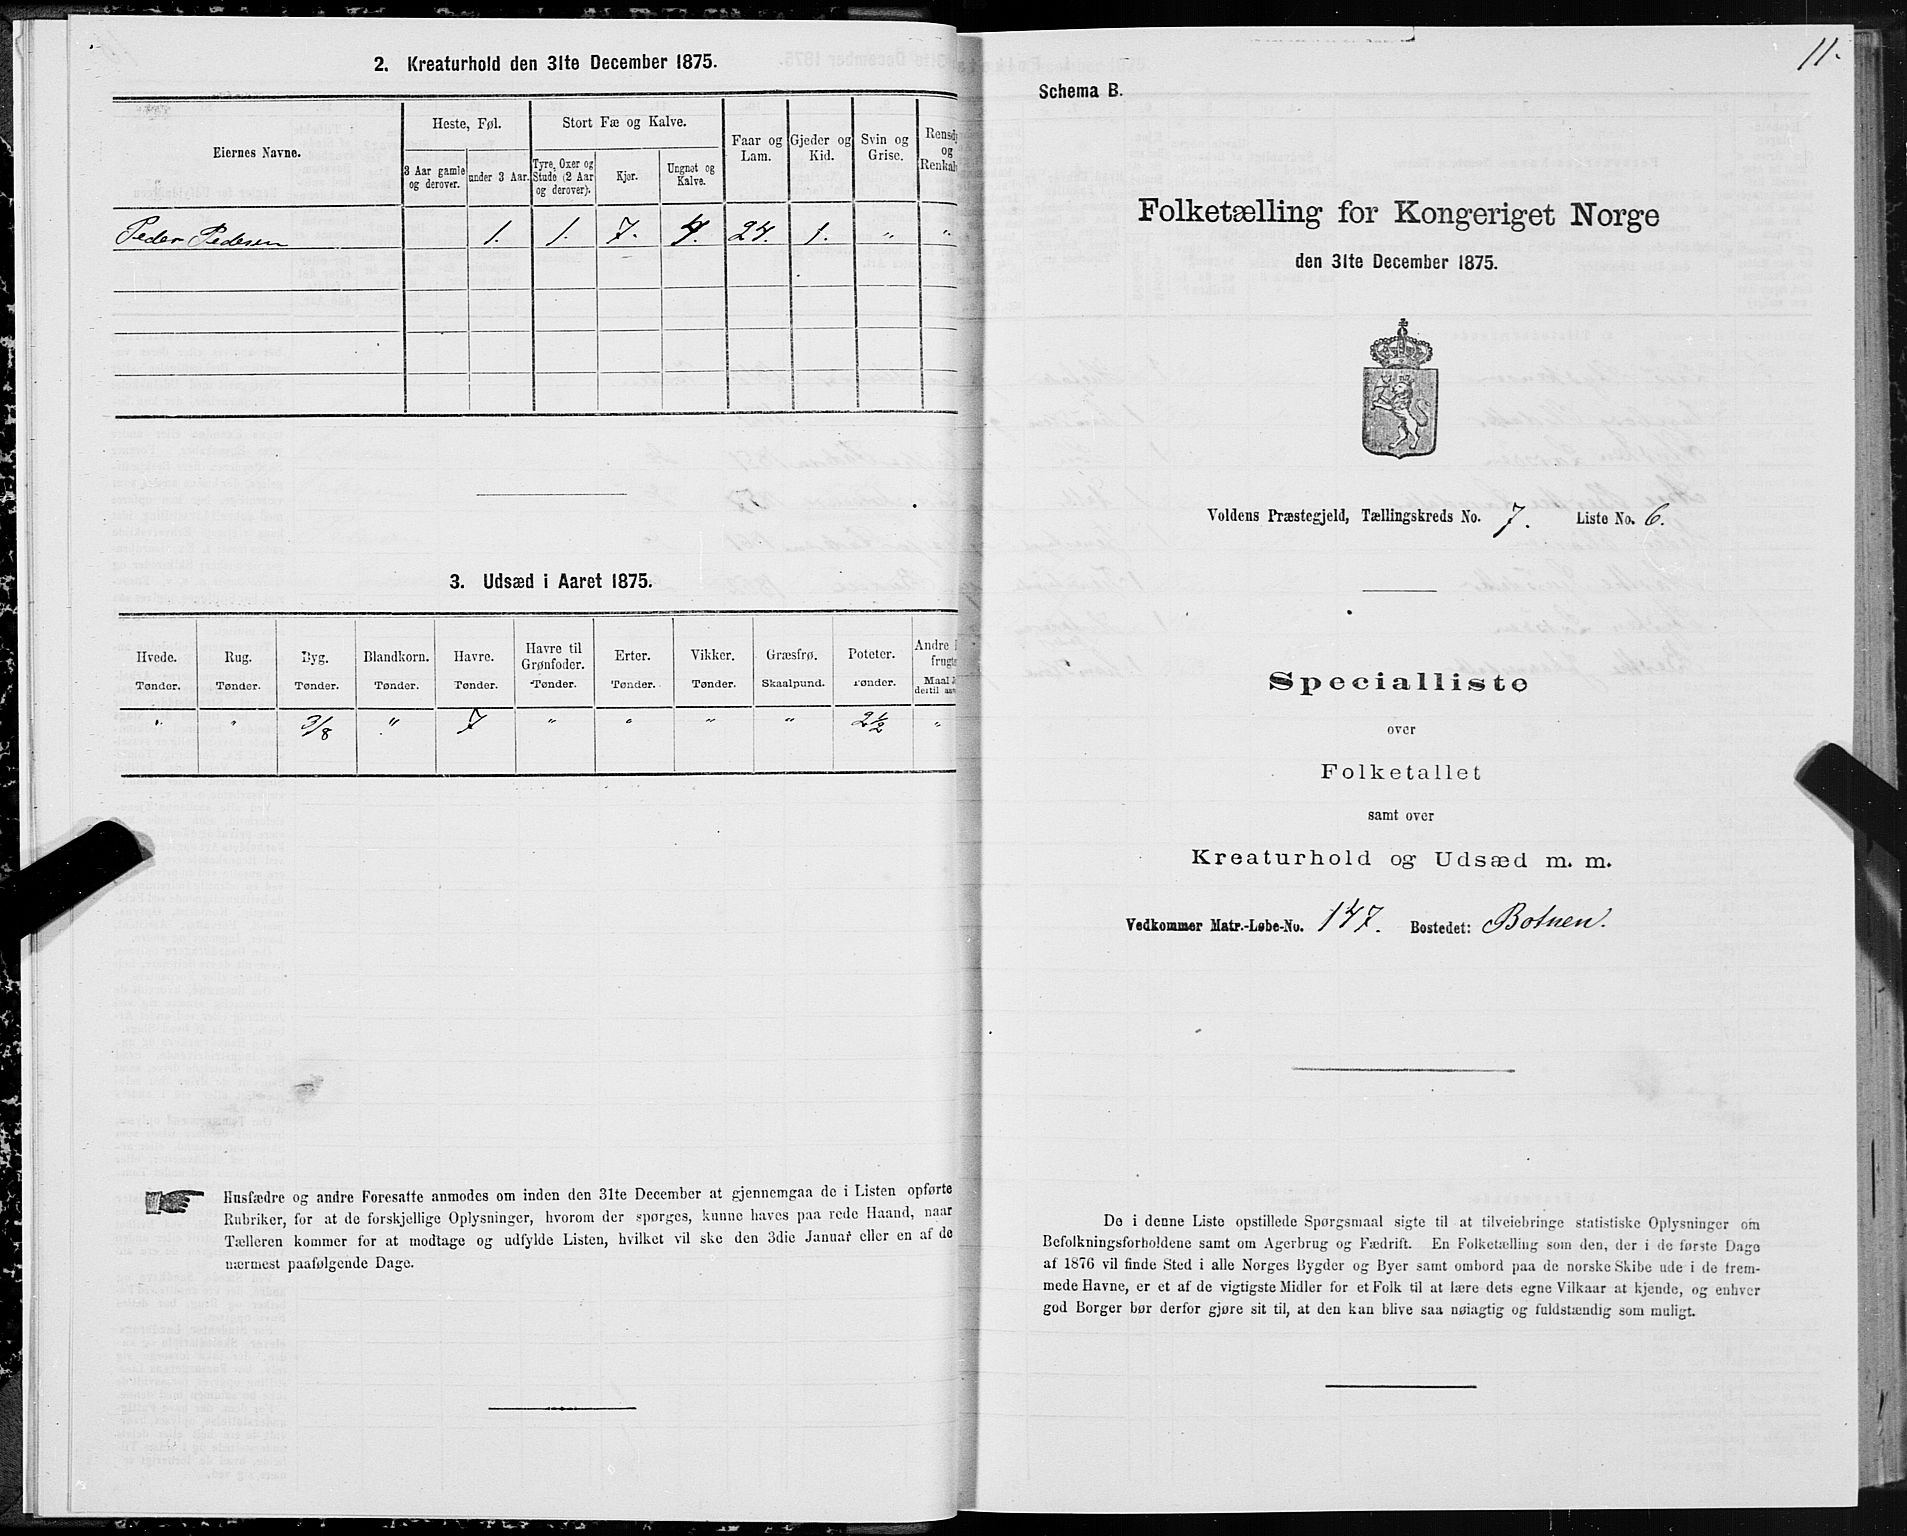 2. Kreaturhold den 31te December 1875.
Eiernes Navne.
Heste, Føl.
Stort Fæ og Kalve.
Faar og Lam.
Gjeder og Kid.
Svin og Grise.
Rensd
og
Renkal
3 Aar gamle og derover.
under 3 Aar.
Tyre, Oxer og Stude (2 Aar og derover).
Kjør.
Ungnøt og Kalve.
Peder Pedersen 1. 1. 7. 4. 24. 1. " "
3. Udsæd i Aaret 1875.
Hvede. Rug. Byg. Blandkorn. Havre. Havre til Grønfoder. Erter. Vikker. Græsfrø. Poteter. Andre
frugt
Tønder. Tønder. Tønder. Tønder. Tønder. Tønder. Tønder. Tønder. Skaalpund. Tønder. Maal
" " 3/8 " 7 " " " " 2 1/2 "
Husfædre og andre Foresatte anmodes om inden den 31te December at gjennemgaa de i Listen opførte
Rubriker, for at de forskjellige Oplysninger, hvorom der spørges, kunne haves paa rede Haand, naar
Tælleren kommer for at modtage og udfylde Listen, hvilket vil ske den 3die Januar eller en af de
nærmest paafølgende Dage.
11.
Schema B.
Folketælling for Kongeriget Norge
den 31te December 1875.
Voldens Præstegjeld, Tællingskreds No. 7. Liste No. 6.
Specialliste
over
Folketallet
samt over
Kreaturhold og Udsæd m. m.
Vedkommer Matr.-Løbe-No. 147. Bostedet: Botnen.
De i denne Liste opstillede Spørgsmaal sigte til at tilveiebringe statistiske Oplysninger om
Befolkningsforholdene samt om Agerbrug og Fædrift. En Folketælling som den, der i de første Dage
af 1876 vil finde Sted i alle Norges Bygder og Byer samt ombord paa de norske Skibe ude i de frem-
mede Havne, er et af de vigtigste Midler for et Folk til at lære dets egne Vilkaar at kjende, og enhver
god Borger bør derfor gjøre sit til, at den kan blive saa nøiagtig og fuldstændig som muligt.